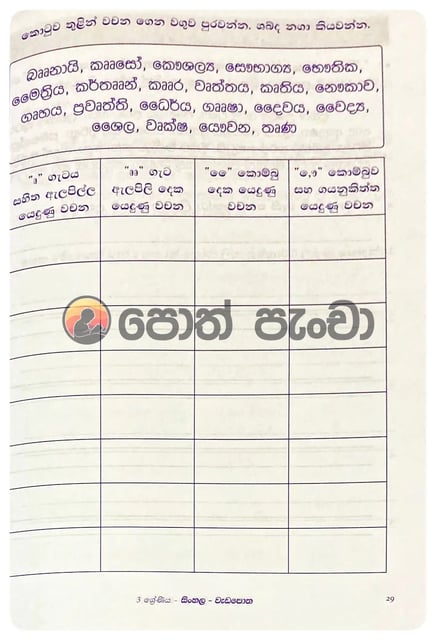 කොටුව තුළින් වචන ගෙන වගුව පුරවන්න. ශබ්ද නගා කියවන්න.
ඛෲනායි, කෲසෝ, කෞශල්‍ය, සෞභාග්‍ය, භෞතික,
මෛත්‍රිය, කර්තෲන්, කෲර, වෘත්තය, කෘතිය, නෞකාව,
ගෘහය, ප්‍රවෘත්ති, ධෛර්ය, ගෲෂා, දෛවය, වෛද්‍ය,
ශෛල, වෘක්ෂ, යෞවන, තෘණ
"ෘ" ගැටය
සහිත ඇලපිල්ල
යෙදුණු වචන
"ෲ" ගැට
ඇලපිලි දෙක
යෙදුණු වචන
"ෛ" කොම්බු
දෙක යෙදුණු
වචන
"ෙ,ෟ" කොම්බුව
සහ ගයනුකිත්ත
යෙදුණු වචන
පොත් පැංචා
3 ශ්‍රේණිය - සිංහල - වැඩපොත
29